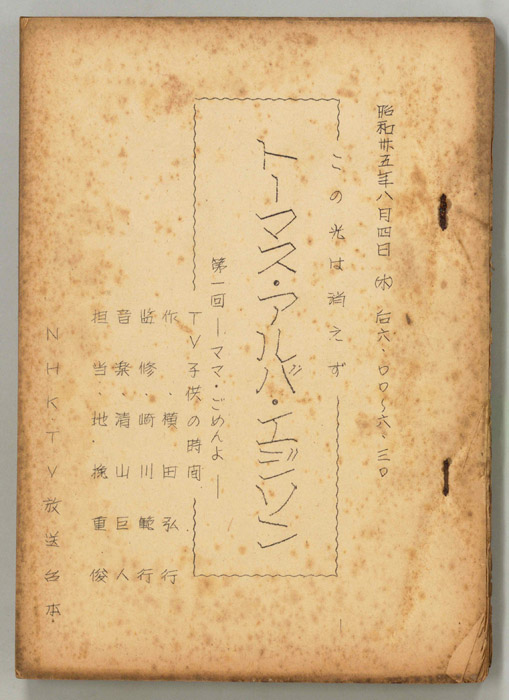 昭和卅五年八月四日(水)后六・〇〇〜六・三〇
この光は消えず
トーマス・アルバ・エジソン
第一回―ママ・ごめんよ―
TV子供の時間
作・横田弘行
監修・崎川範行
音楽・清山巨人
担当・地挽重俊
NHKTV放送台本・